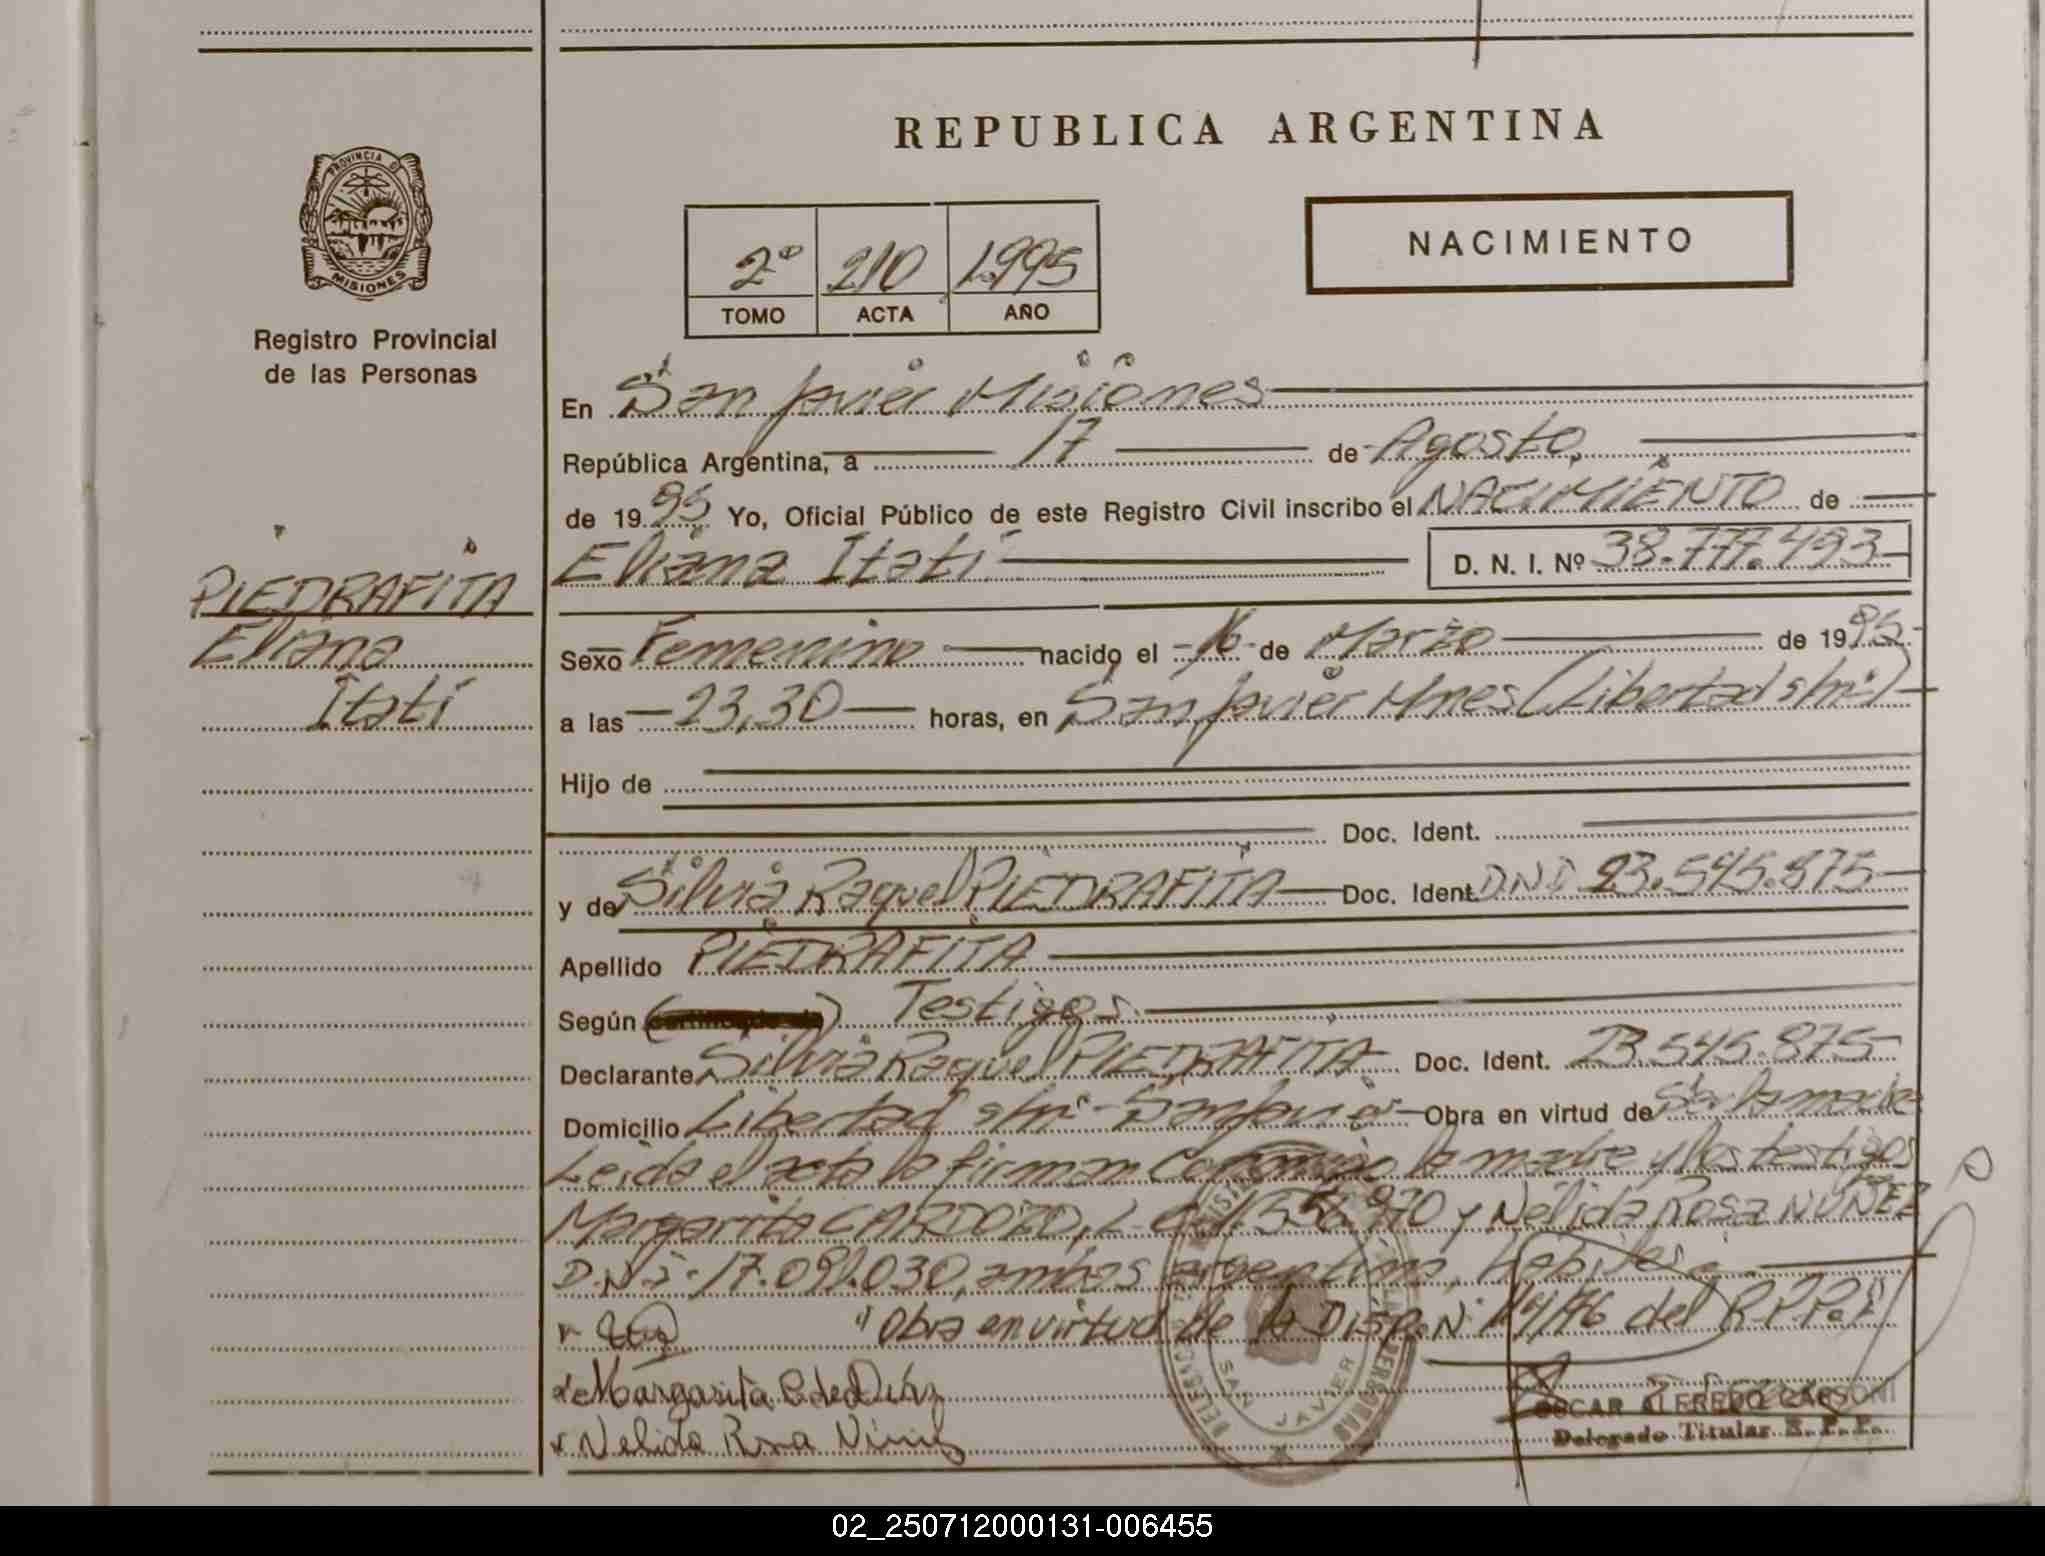 REPUBLICA ARGENTINA
NACIMIENTO
2º 210 1.995
TOMO ACTA AÑO
PROVINCIA DE MISIONES
Registro Provincial
de las Personas
PIEDRAFITA
Eliana
Itatí
En San Javier Misiones
República Argentina, a 17 de Agosto,
de 1995 Yo, Oficial Público de este Registro Civil inscribo el NACIMIENTO de
Eliana Itatí D. N. I. Nº 38.777.493
Sexo Femenino nacido el 16 de Marzo de 1995
a las 23,30 horas, en San Javier Mnes (Libertad s/nº)
Hijo de
Doc. Ident.
y de Silvia Raquel PIEDRAFITA Doc. Ident. DNI 23.545.875
Apellido PIEDRAFITA
Según ( ) Testigos
Declarante Silvia Raquel PIEDRAFITA Doc. Ident. 23.545.875
Domicilio Libertad s/nº - San Javier Obra en virtud de Ser la madre
Leida el acta la firman conmigo la madre y los testigos
Margarita CARDOZO, L.C. y Nélida Rosa NUÑEZ
D.N.I. 17.091.030, ambas argentina, habiles
"Obra en virtud de la Disp. Nº 14/76 del R.P.P."
Margarita C. de Diaz
Nelida Rosa Nuñez
SAN JAVIER
OSCAR ALFREDO CARSONI
Delegado Titular R. P. P.
02_250712000131-006455